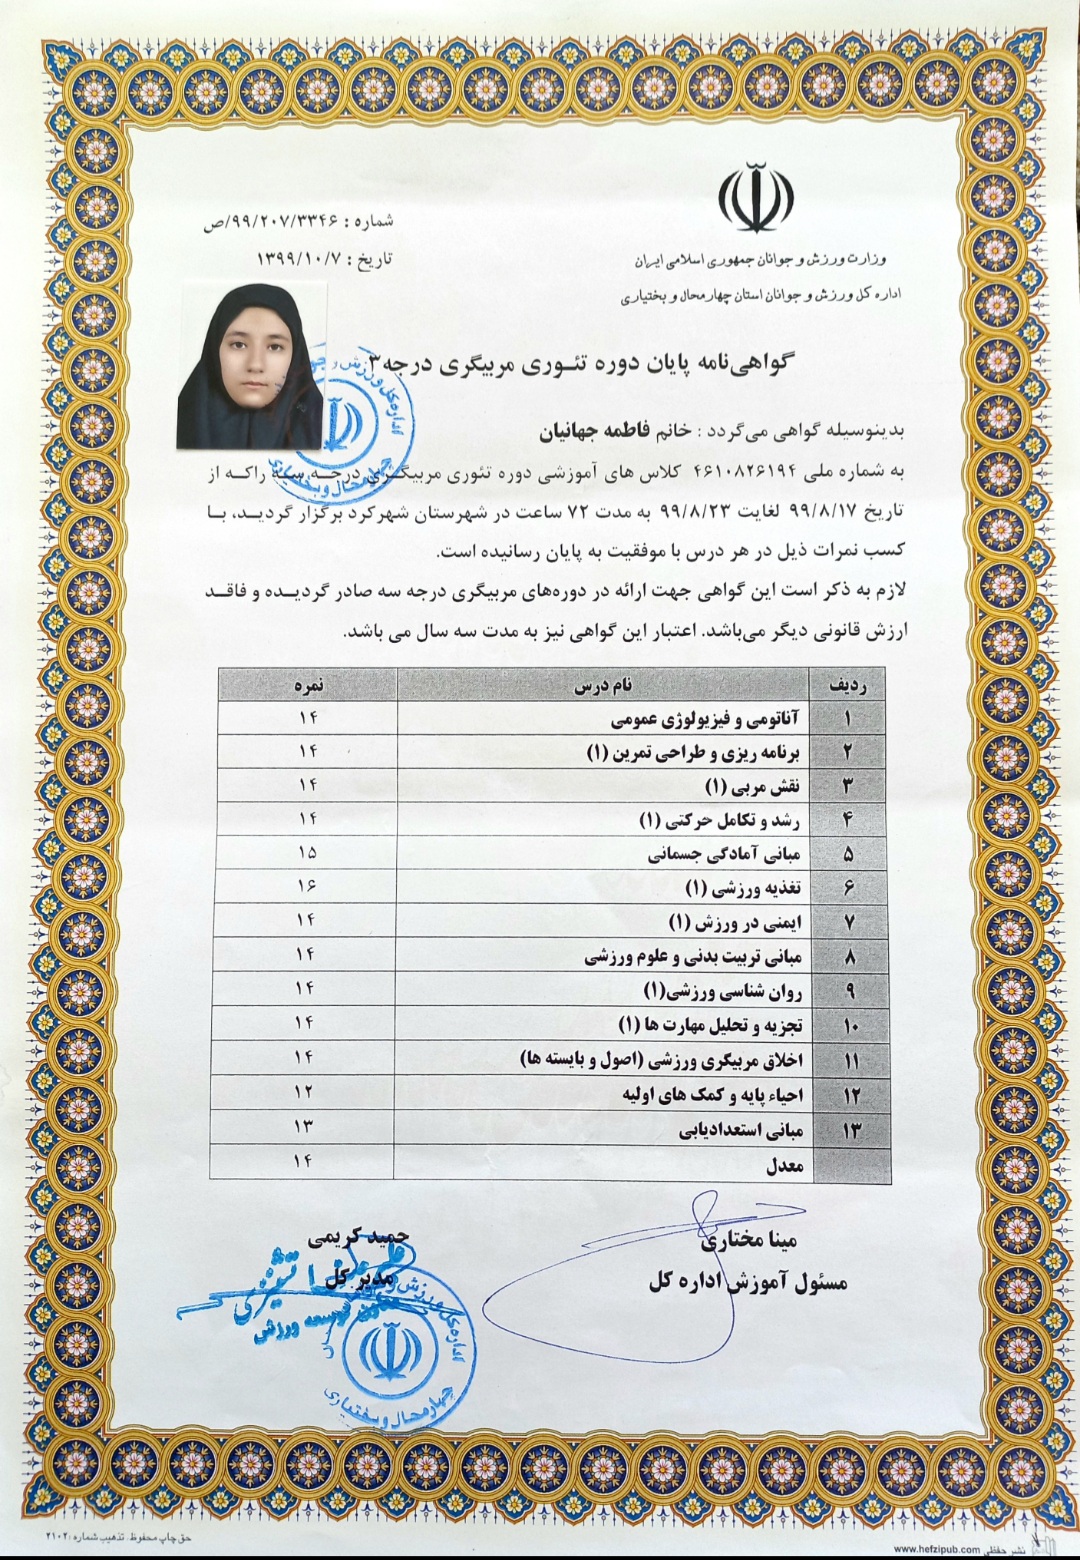 شماره : ۹۹/۲۰۷/۳۳۴۶/ص
تاریخ : ۱۳۹۹/۱۰/۷
وزارت ورزش و جوانان جمهوری اسلامی ایران
اداره کل ورزش و جوانان استان چهارمحال و بختیاری
گواهی‌نامه پایان دوره تئـوری مربیگری درجه ۳
بدینوسیله گواهی می‌گردد : خانم فاطمه جهانیان
به شماره ملی ۴۶۱۰۸۲۶۱۹۴ کلاس های آموزشی دوره تئوری مربیگـری درجـه سـه راکـه از
تاریخ ۹۹/۸/۱۷ لغایت ۹۹/۸/۲۳ به مدت ۷۲ ساعت در شهرستان شهرکرد برگزار گردیـد، بـا
کسب نمرات ذیل در هر درس با موفقیت به پایان رسانیده است.
لازم به ذکر است این گواهی جهت ارائه در دوره‌های مربیگری درجه سه صادر گردیـده و فاقـد
ارزش قانونی دیگر می‌باشد. اعتبار این گواهی نیز به مدت سه سال می باشد.
ردیف نام درس نمره
۱ آناتومی و فیزیولوژی عمومی ۱۴
۲ برنامه ریزی و طراحی تمرین (۱) ۱۴
۳ نقش مربی (۱) ۱۴
۴ رشد و تکامل حرکتی (۱) ۱۴
۵ مبانی آمادگی جسمانی ۱۵
۶ تغذیه ورزشی (۱) ۱۶
۷ ایمنی در ورزش (۱) ۱۴
۸ مبانی تربیت بدنی و علوم ورزشی ۱۴
۹ روان شناسی ورزشی(۱) ۱۴
۱۰ تجزیه و تحلیل مهارت ها (۱) ۱۴
۱۱ اخلاق مربیگری ورزشی (اصول و بایسته ها) ۱۴
۱۲ احیاء پایه و کمک های اولیه ۱۲
۱۳ مبانی استعدادیابی ۱۳
معدل ۱۴
مینا مختاری
مسئول آموزش اداره کل
حمید کریمی
مدیر کل
توسعه ورزش
اداره کل ورزش و
چهارمحال و بختیاری
نشر حفظی www.hefzipub.com
حق چاپ محفوظ. تذهیب شماره : ۲۱۰۲